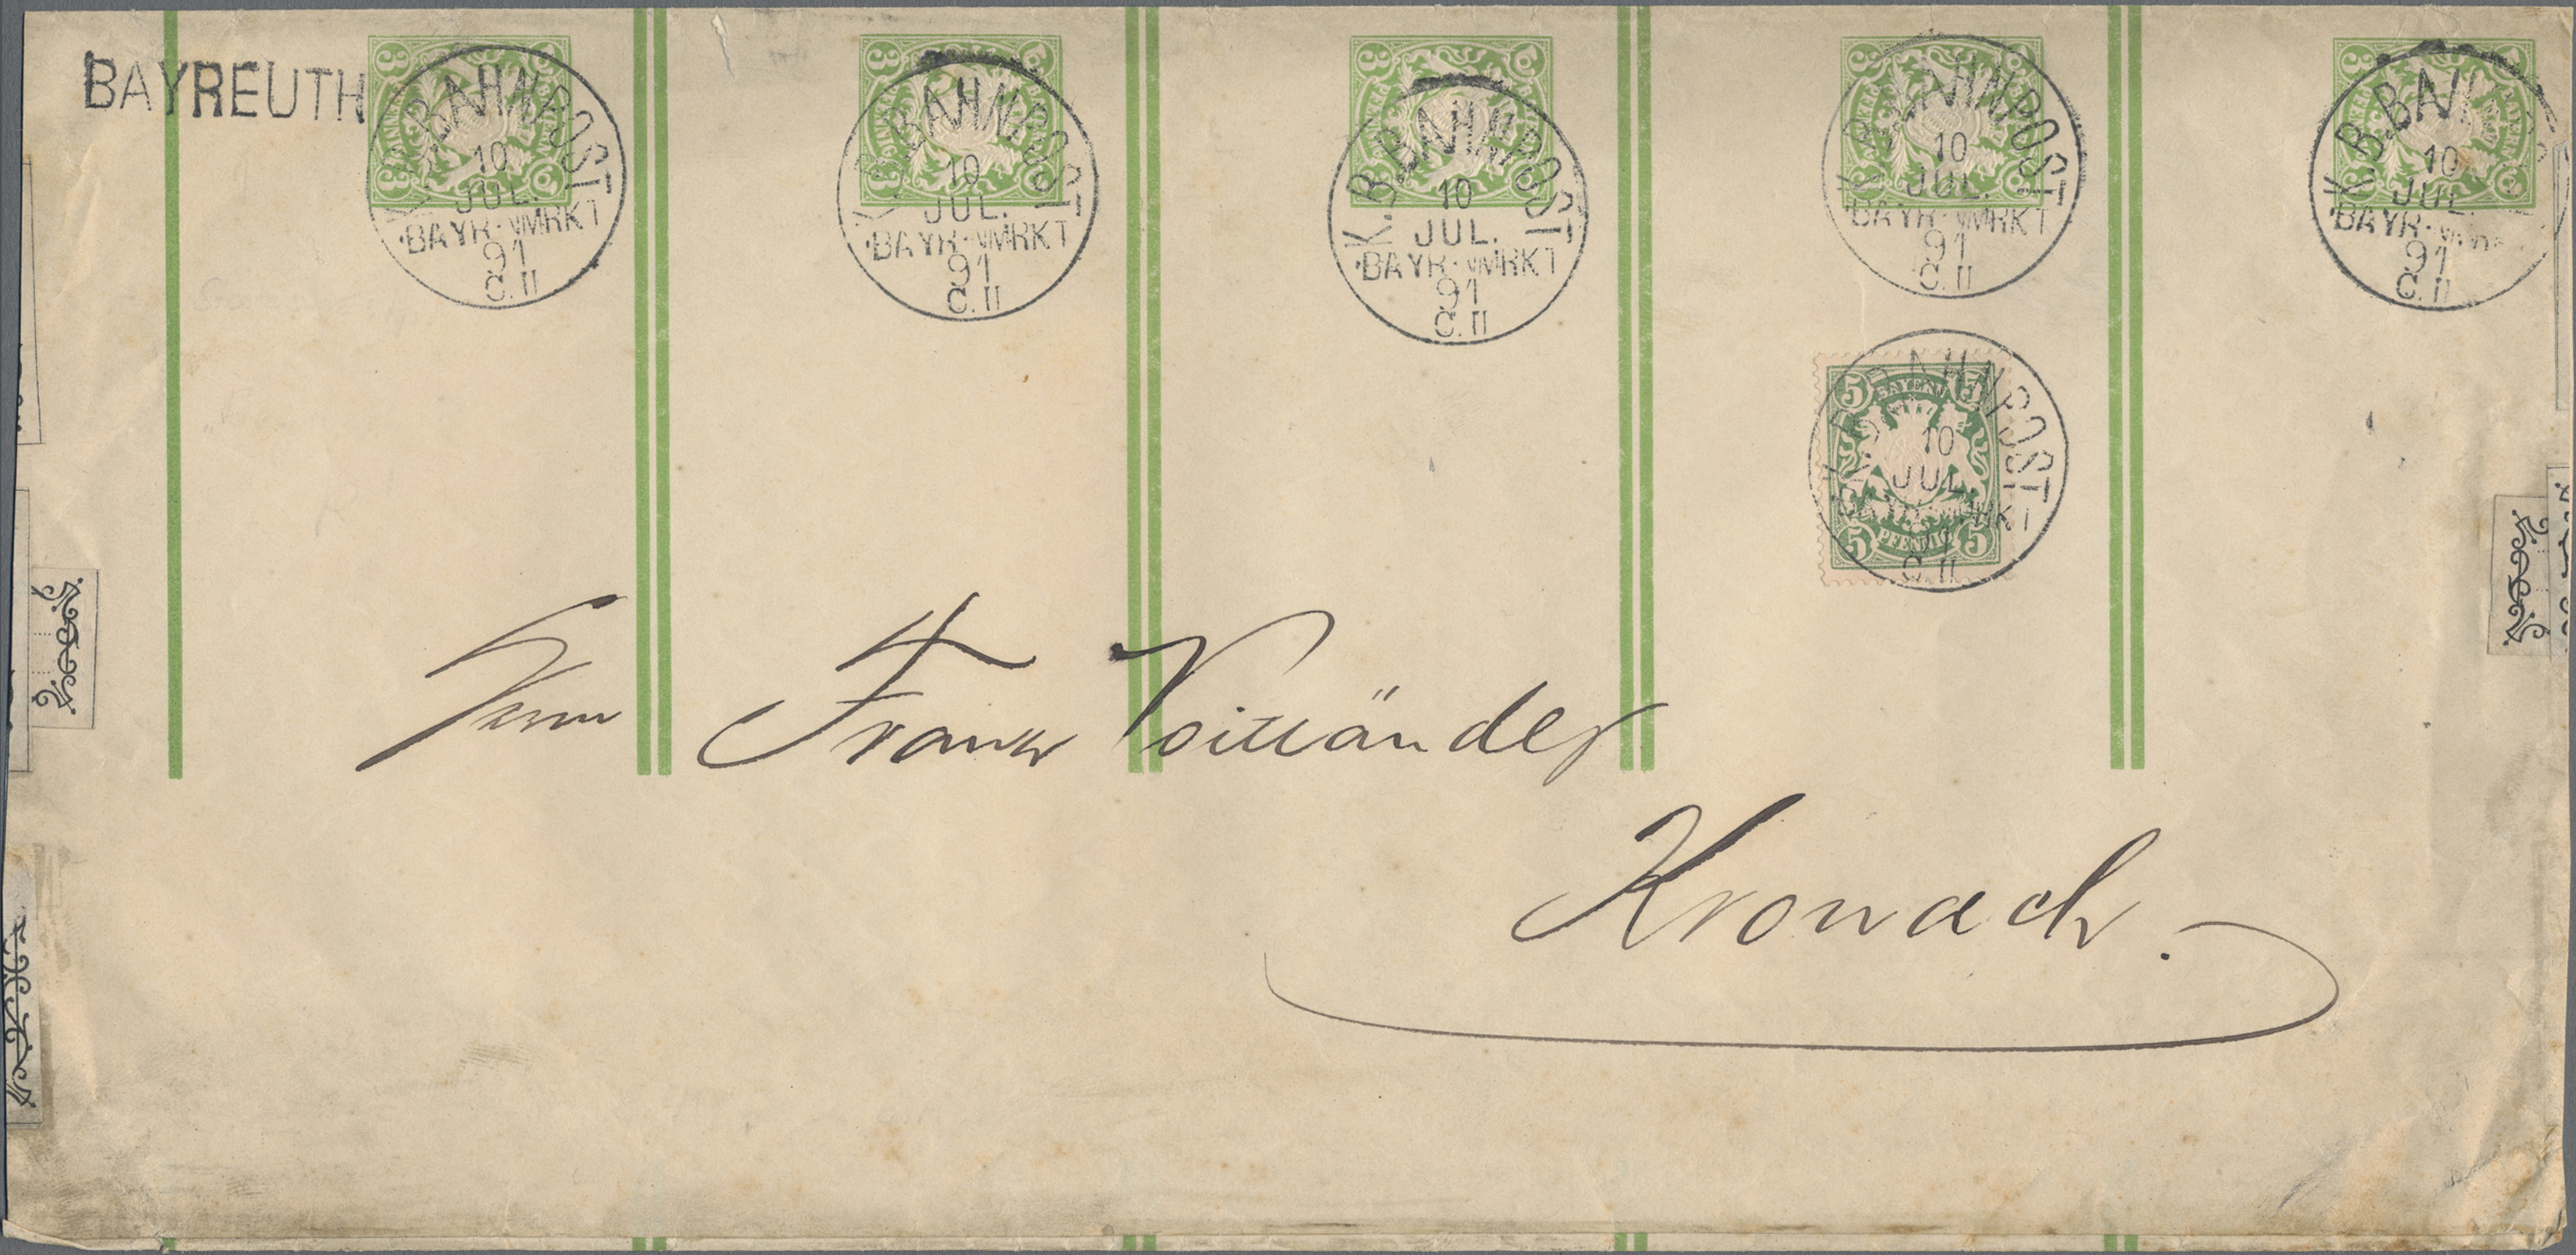 BAYREUTH
K.B.BAHNPOST
10
JUL.
BAYR-NMRKT
91
C. II
K.B.BAHNPOST
10
JUL.
BAYR-NMRKT
91
C. II
K.B.BAHNPOST
10
JUL.
BAYR-NMRKT
91
C. II
K.B.BAHNPOST
10
JUL.
BAYR-NMRKT
91
C. II
K.B.BAHNPOST
10
JUL.
BAYR-NMRKT
91
C. II
5 BAYERN 5
5 PFENNIG 5
K.B.BAHNPOST
10
JUL.
BAYR-NMRKT
91
C. II
Herrn Franz Voitländer
Kronach.